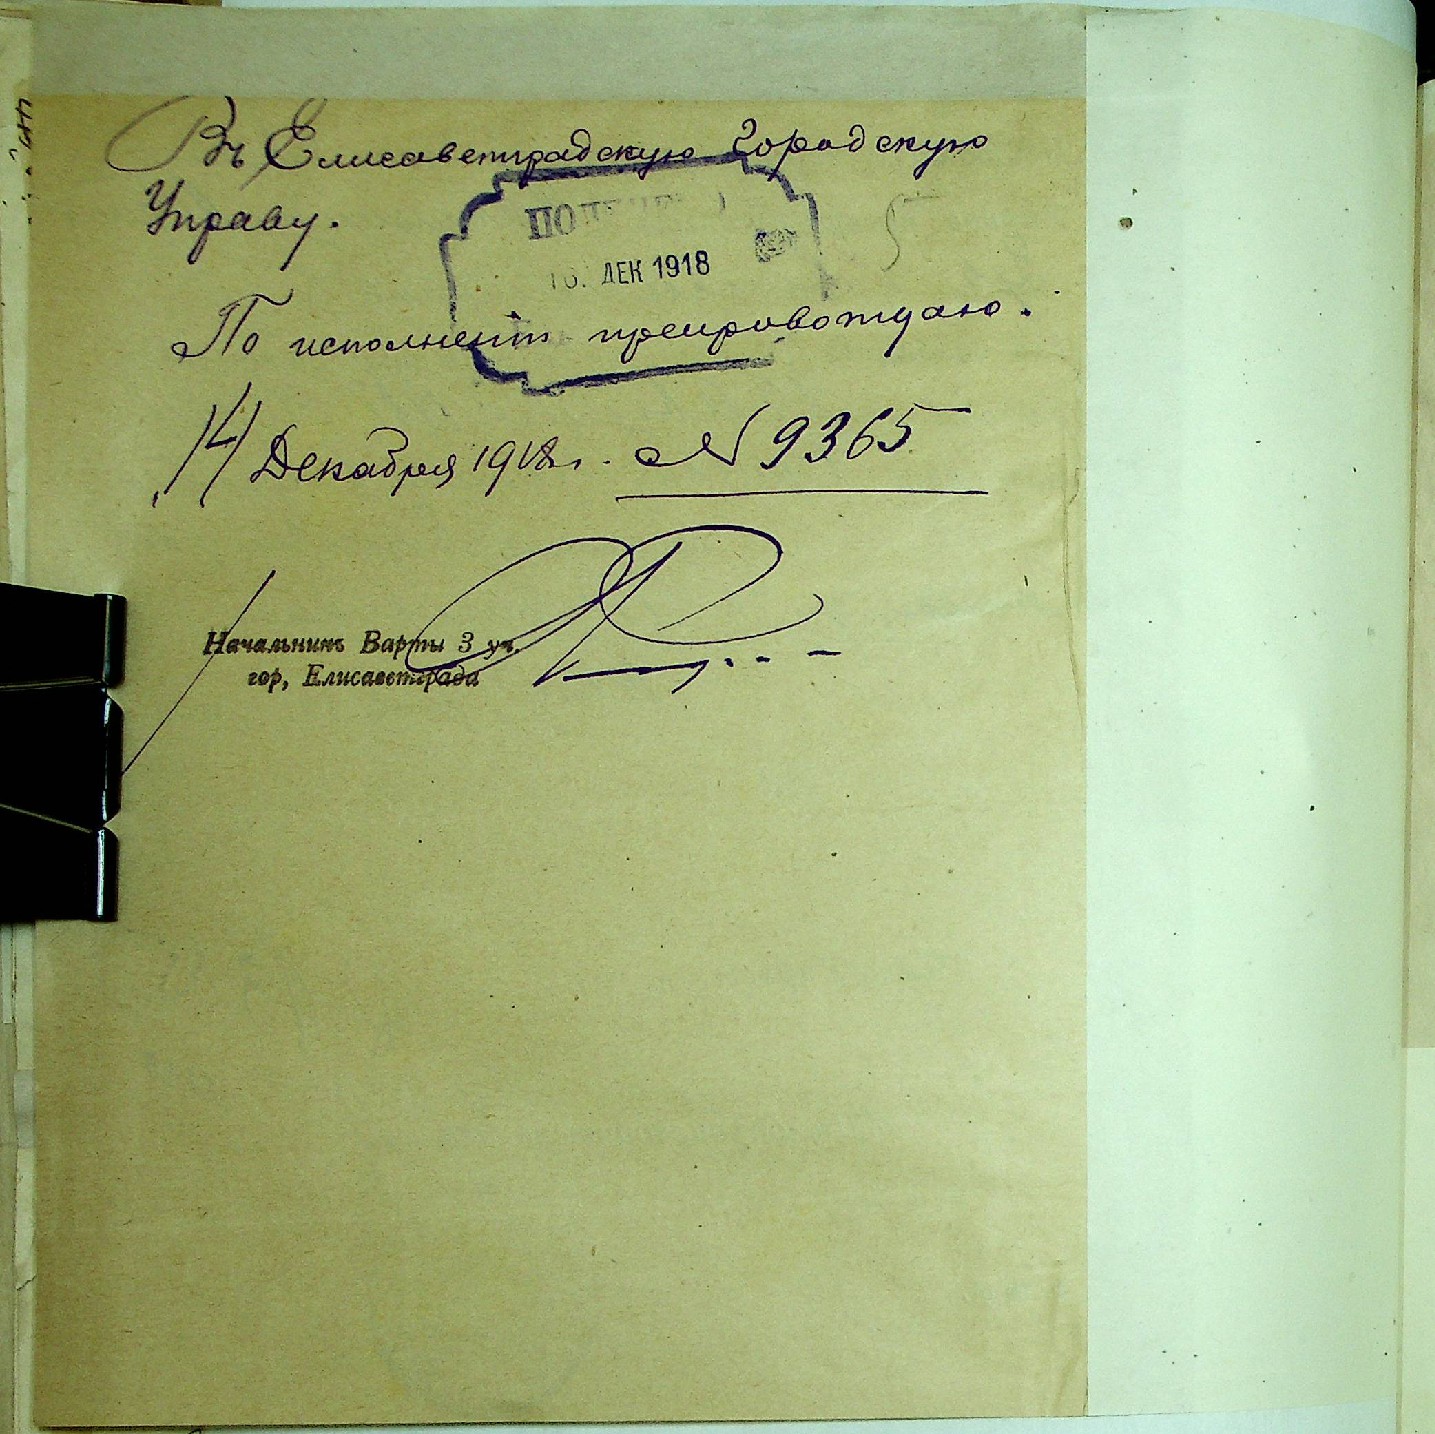 Въ Елисаветградскую Городскую
Управу.
ПОЛУЧЕНО
16. ДЕК 1918
По исполненіи препровождаю.
14 Декабря 1918 г. № 9365
Начальникъ Варты 3 уч.
гор, Елисаветграда